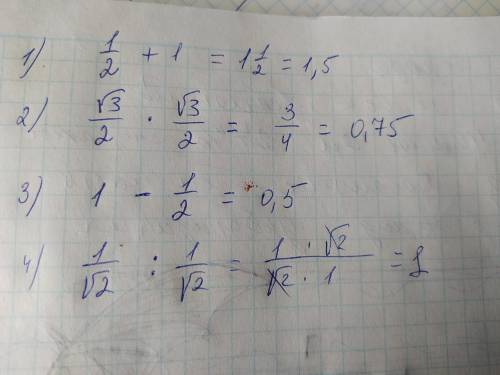 1) 1/2 + 1 = 1 1/2 = 1,5
2) √3/2 · √3/2 = 3/4 = 0,75
3) 1 - 1/2 = 0,5
4) 1/√2 : 1/√2 = 1 · √2 / √2 · 1 = 1